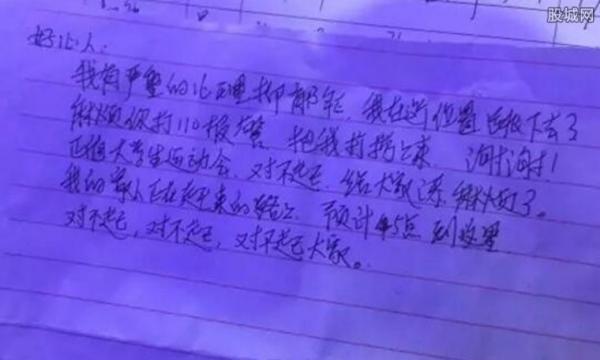 股城网
好心人:
我有严重的心理抑郁症,我在这位置跳下去了
麻烦你打110报警,把我打捞上来,谢谢!
正值大学生运动会,对不起,给大家添麻烦了。
我的家人正在赶来的路上,预计4.5点到这里
对不起,对不起,对不起大家。